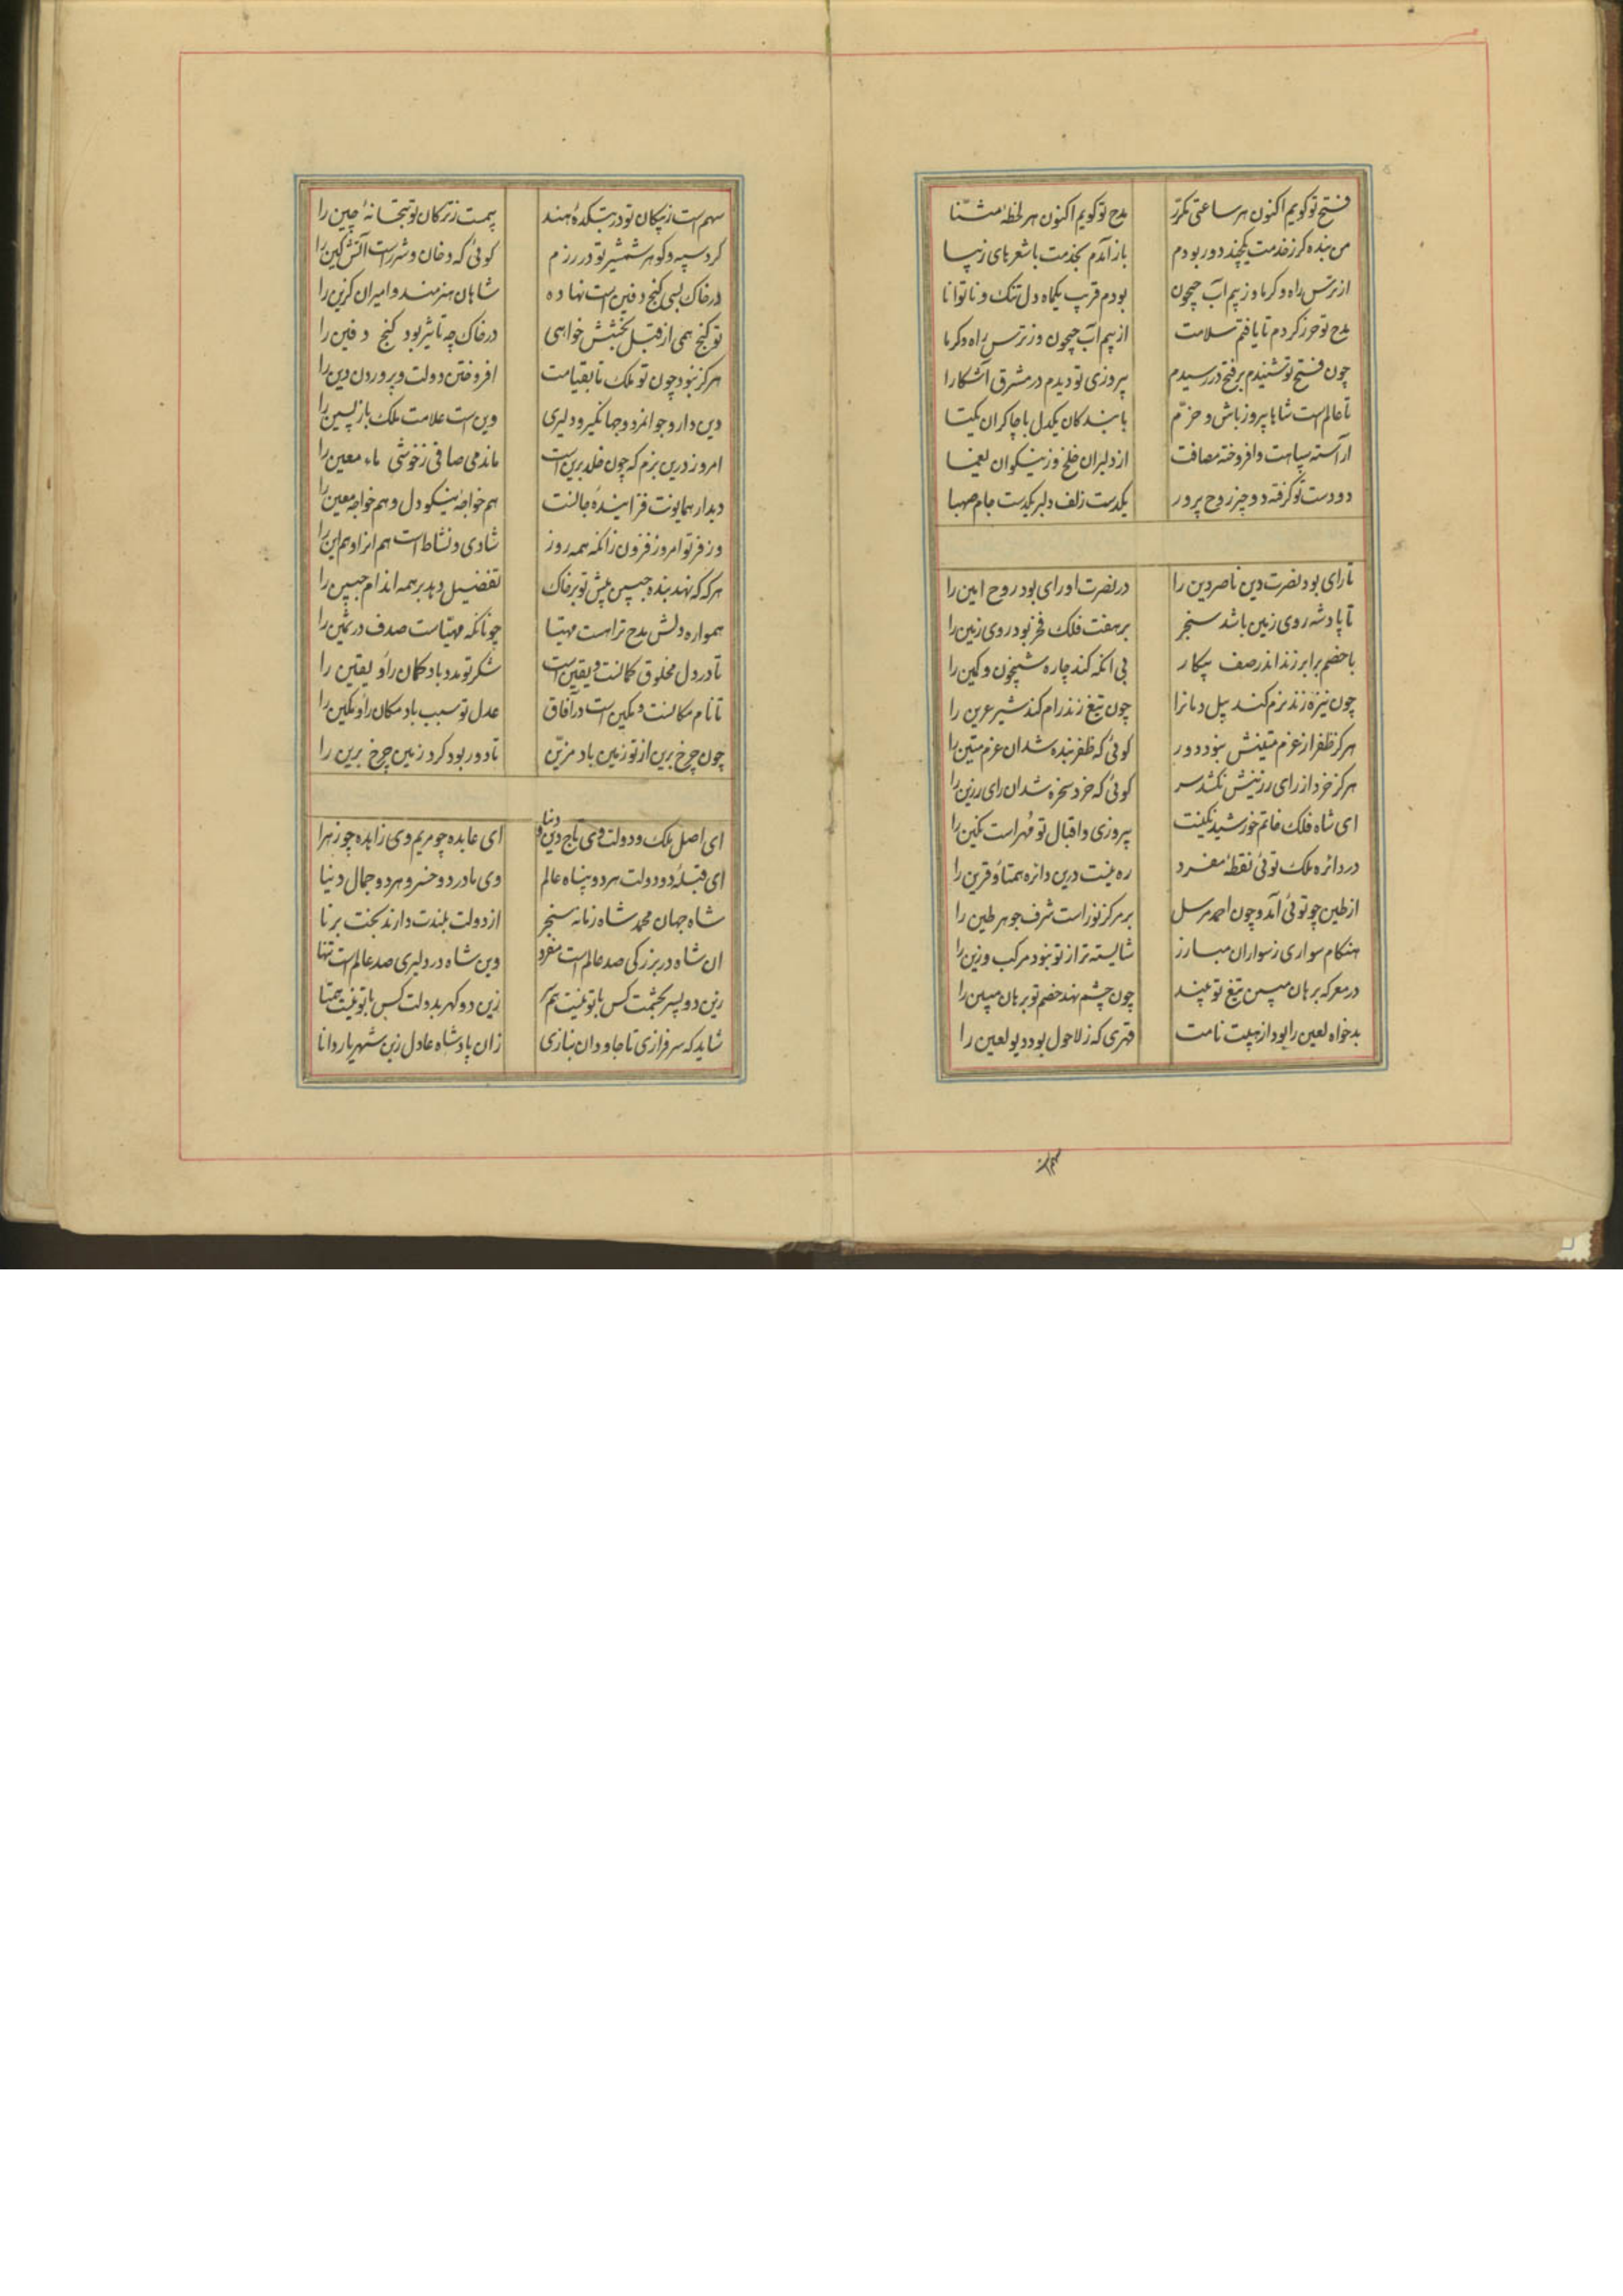 فتح تو کویم اکنون هر ساعتی مکرّر مدح تو کویم اکنون هر لحظهٔ مثنّا
من بنده کرز خدمت یکچند دور بودم باز آمدم بخدمت با شعرهای زیبا
از ترس راه و کرما وز بیم آب جیحون بودم قریب یکماه دل تنک و ناتوانا
مدح تو حرز کردم تا یافتم سلامت از بیم آب جیحون وز ترس راه و کرما
چون فتح تو شنیدم بر فتح در رسیدم پیروزی تو دیدم در مشرق آشکارا
تا عالم است شاها پیروز باش و خرّم با بندکان یکدل با چاکران یکتا
آراسته سپاهت و افروخته مصافت از دلبران خلخ وز نیکوان یغما
دو دست تو کرفته دو چیز روح پرور یکدست زلف دلبر یکدست جام صهبا
تا رای بود نصرت دین ناصر دین را در نصرت او رای بود روح امین را
تا پادشه روی زمین باشد سنجر بر هفت فلک فخر بود روی زمین را
با خصم برابر زند اندر صف پیکار بی آنکه کند چاره شبیخون و کمین را
چون نیزه زند نرم کند پیل دمانرا چون تیغ زند رام کند شیر عرین را
هرکز ظفر از عزم متینش نبود دور کوئی که ظفر بنده شد ان عزم متین را
هرکز خرد از رای رزینش نکشد سر کوئی که خرد سخره شد ان رای رزین را
ای شاه فلک خاتم خورشید نکینت پیروزی و اقبال تو مُهراست نکین را
در دائره ملک توئی نقطهٔ مفرد ره نیست درین دائره همتا و قرین را
از طین چو توئی آمد و چون احمد مرسل بر مرکز نور است شرف جوهر طین را
هنکام سواری ز سواران مبارز شایسته تر از تو نبود مرکب و زین را
در معرکه برهان مبین تیغ تو بیند چون چشم نهد خصم تو برهان مبین را
بدخواه لعین را بود از هیبت نامت قهری که ز لاحول بود دیو لعین را
سهم است ز پیکان تو در بتکدهٔ هند بیمست ز ترکان تو بتخانهٔ چین را
کرد سپه و کوهر شمشیر تو در رزم کوئی که دخان و شرر است آتش کین را
در خاک بسی کنج دفین است نهاده شاهان هنرمند و امیران کزین را
تو کنج همی از قبل بخشش خواهی در خاک چه تاثیر بود کنج دفین را
هرکز نبود چون تو ملک تا بقیامت افروختن دولت و پروردن دین را
دین دار و جوانمرد و جهانکیر و دلیری وین است علامت ملک باز پسین را
امروز درین بزم که چون خلد برین است ماند می صافی ز خوشی ماء معین را
دیدار همایونت فزایندهٔ جانست هم خواجهٔ نیکو دل و هم خواجه معین را
وز فر تو امروز فزون زانکه همه روز شادی و نشاط است هم انرا و هم این را
هرکه که نهد بنده جبین پیش تو بر خاک تفضیل دهد بر همه اندام جبین را
همواره دلش مدح ترا هست مهیّا چونانکه مهیّاست صدف در ثمین را
تا در دل مخلوق کمانست و یقین است شکر تو مدد باد کمان را و یقین را
تا نام مکانست و مکین است در آفاق عدل تو سبب باد مکان را و مکین را
چون چرخ برین از تو زمین باد مزیّن تا دور بود کرد زمین چرخ برین را
ای اصل ملک و دولت وی تاج دین و دنیا ای عابده چو مریم وی زاهده چو زهرا
ای قبلهٔ دو دولت هر دو پناه عالم وی مادر دو خسرو هر دو جمال دنیا
شاه جهان محمد شاه زمانه سنجر از دولت بلندت دارند بخت برنا
ان شاه در بزرکی صد عالم است مفرد وین شاه در دلیری صد عالم است تنها
زین دو پسر بحشمت کس با تو نیست همبر زین دو کهر بدولت کس با تو نیست همتا
شاید که سرفرازی تا جاودان بنازی زان پادشاه عادل زین شهریار دانا